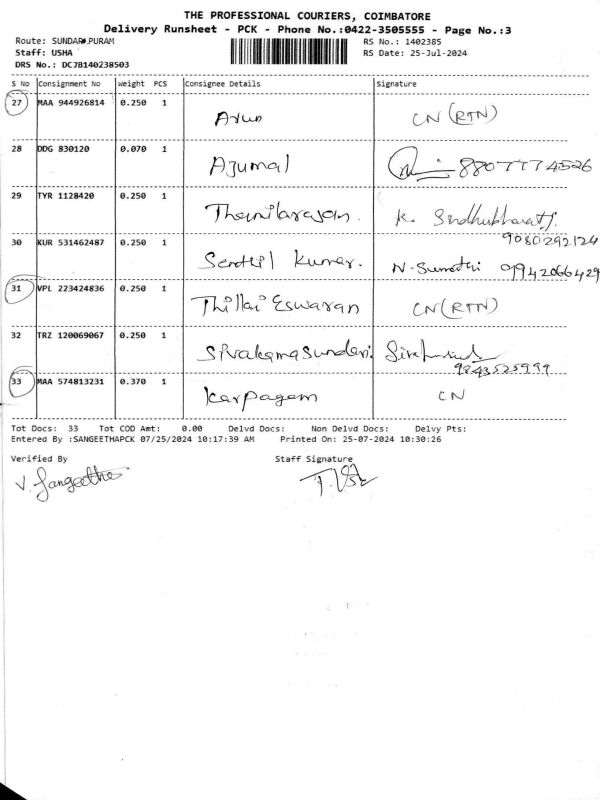 THE PROFESSIONAL COURIERS, COIMBATORE
Delivery Runsheet - PCK - Phone No.:0422-3505555 - Page No.:3
Route: SUNDARAPURAM RS No.: 1402385
Staff: USHA RS Date: 25-Jul-2024
DRS No.: DCJB140238503
S No Consignment No Weight PCS Consignee Details Signature
27 MAA 944926814 0.250 1
Arun CN (RTN)
28 DDG 830120 0.070 1
Ajumal 8807774526
29 TYR 1128420 0.250 1
Thamilarasan. K. Sindhubharathi.
9080292124
30 KUR 531462487 0.250 1
Senthil Kumar. N. Sumathi 9942066429
31 VPL 223424836 0.250 1
Thillai Eswaran CN (RTN)
32 TRZ 120069067 0.250 1
Sivakamasundari.
9843525999
33 MAA 574813231 0.370 1
Karpagam CN
Tot Docs: 33 Tot COD Amt: 0.00 Delvd Docs: Non Delvd Docs: Delvy Pts:
Entered By :SANGEETHAPCK 07/25/2024 10:17:39 AM Printed On: 25-07-2024 10:30:26
Verified By Staff Signature
V. Sangeetha